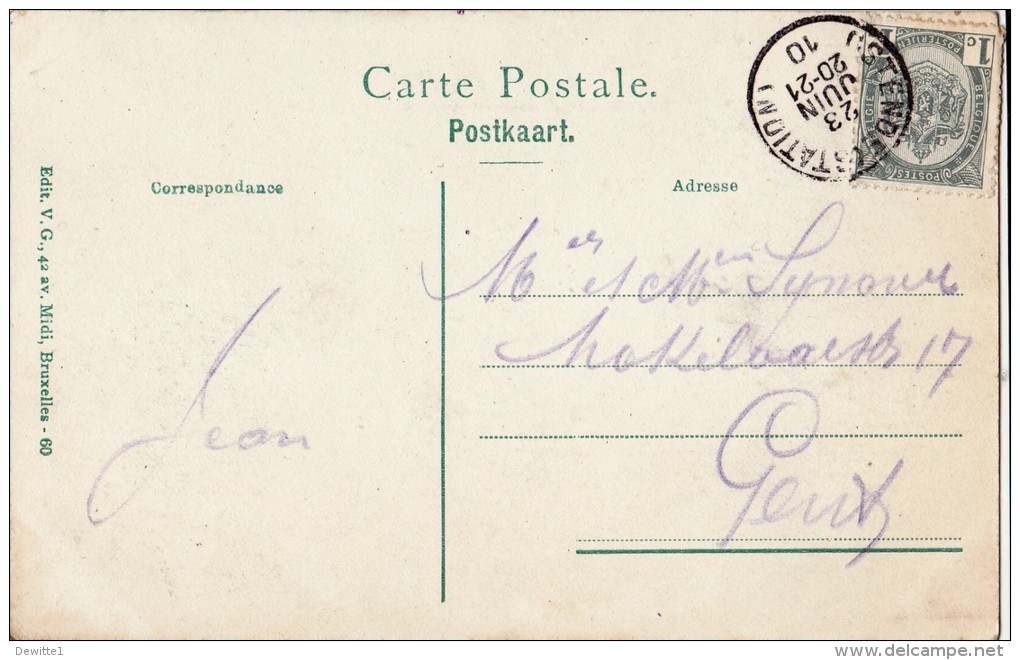 Carte Postale.
Postkaart.
Correspondance
Adresse
Edit. V. G., 42 av. Midi, Bruxelles - 60
OSTENDE (STATION)
23
JUIN
20-21
10
1c
POSTERIJEN
BELGIQUE
BELGIË
POSTES
Jean
Mer et Men
17
Gent
Dewitte1
delcampe.net